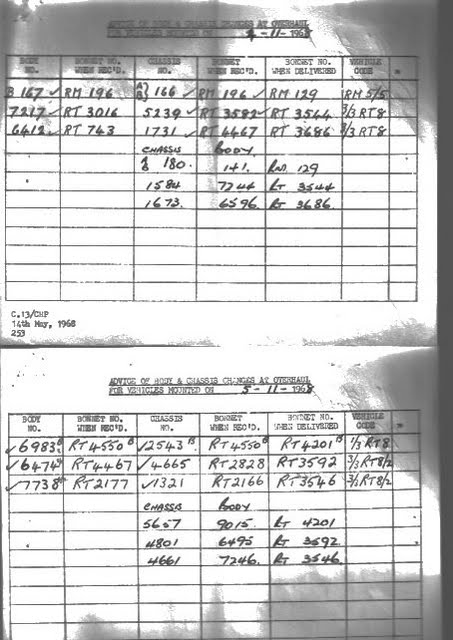 ADVICE OF BODY & CHASSIS CHANGES AT OVERHAUL
FOR VEHICLES MOUNTED ON 1-11-1968
BODY NO. BONNET NO. WHEN REC'D. CHASSIS NO. BONNET WHEN REC'D. BONNET NO. WHEN DELIVERED VEHICLE CODE
B 167 ✓ RM 196 A/B} 166 ✓ RM 196 ✓ RM 129 1RM 5/5
7217 ✓ RT 3016 5239 ✓ RT 3582 ✓ RT 3544 3/3 RT8
6412 ✓ RT 743 1731 ✓ RT 4467 ✓ RT 3686 3/3 RT8
CHASSIS BODY
A/B 180. 141. RM 129
1584 7244 RT 3544
1673. 6596. RT 3686.
C.13/CHP
14th May, 1968
253
ADVICE OF BODY & CHASSIS CHANGES AT OVERHAUL
FOR VEHICLES MOUNTED ON 5-11-1968
BODY NO. BONNET NO. WHEN REC'D. CHASSIS NO. BONNET WHEN REC'D. BONNET NO. WHEN DELIVERED VEHICLE CODE
✓6983 RT4550 ✓2543 RT4550 RT4201 1/3 RT8
✓6474 RT4467 ✓4665 RT2828 RT3592 3/3 RT8/2
✓7738 RT2177 ✓1321 RT2166 RT3546 3/3 RT8/2
CHASSIS BODY
5657 9015. RT 4201
4801 6495 RT 3592.
4661 7246. RT 3546.